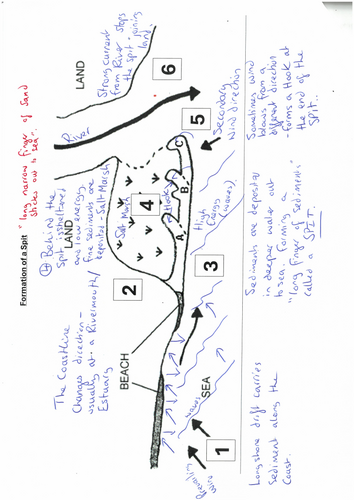 Formation of a Spit
"long narrow finger of Sand
sticks out to sea".
The Coastline
Changes direction -
usually at a Rivermouth/
Estuary
④ Behind the
Spit is sheltered
and low energy.
Fine sediments are
deposited - Salt Marsh
LAND
River
LAND
Strong current
from River stops
the spit joining
land.
BEACH
2
Salt Marsh
4
Hooks
A
B
C
6
5
Secondary
Wind direction
3
High
Energy
(waves)
SEA
waves
1
Prevailing
Wind
Longshore drift carries
Sediment along the
Coast.
Sediments are deposited
in deeper water out
to sea, forming a
"long finger of sediments"
called a SPIT.
Sometimes wind
blows from a
different direction
- forms a Hook at
the end of the
Spit.